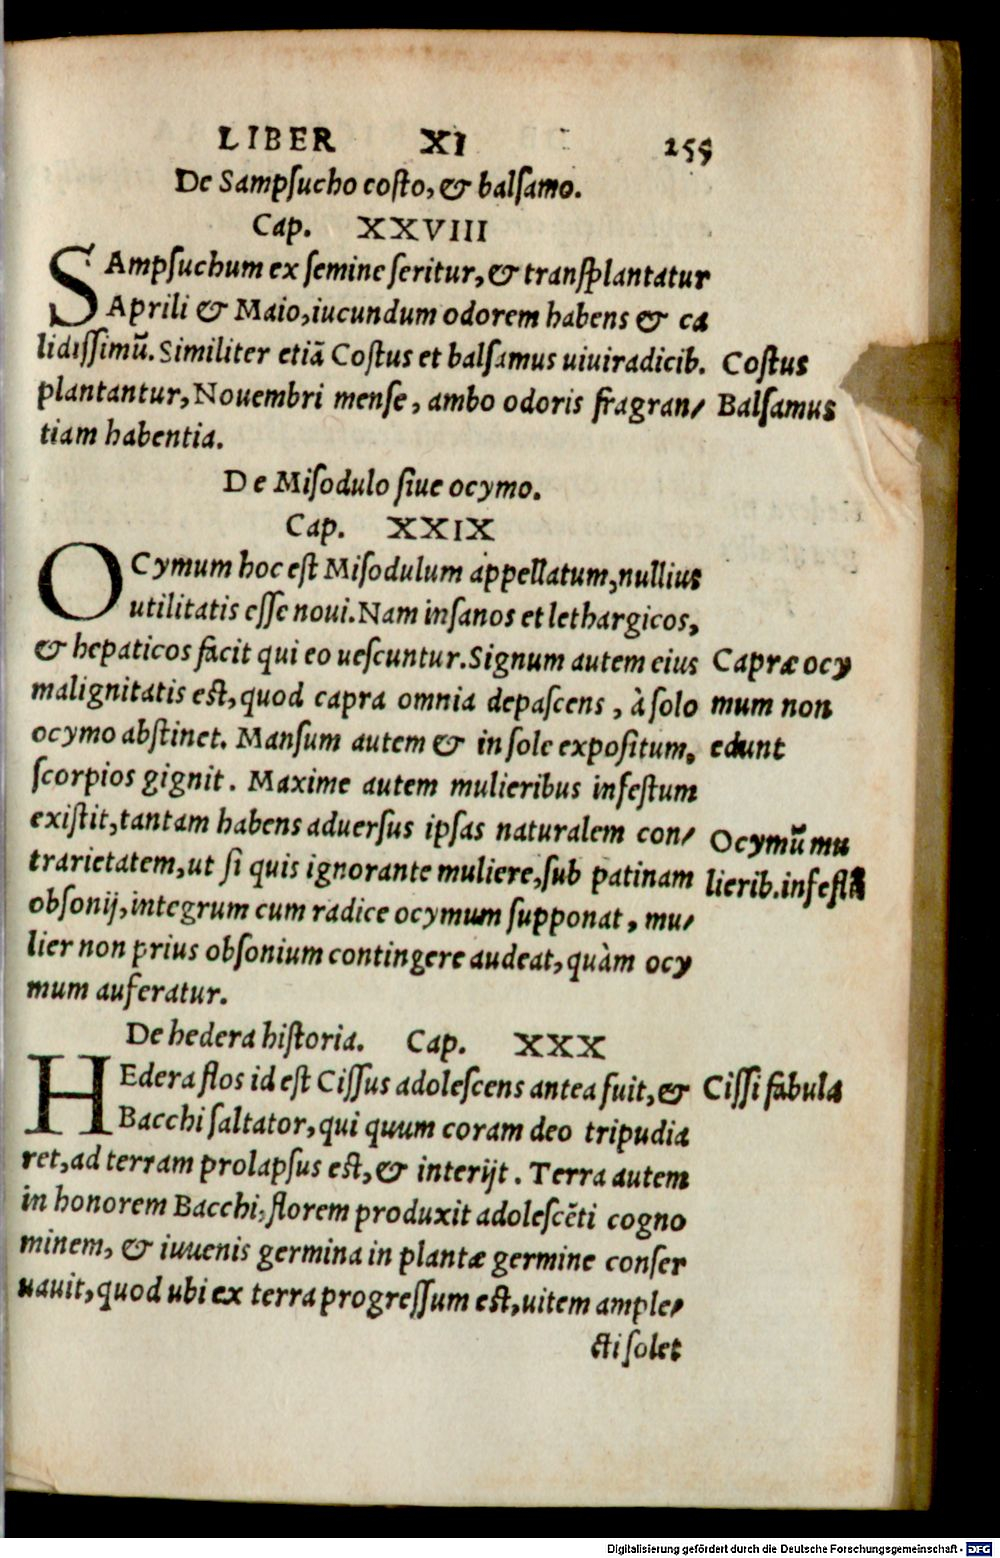 LIBER XI 255
De Sampsucho costo, & balsamo.
Cap. XXVIII
SAmpsuchum ex semine seritur, & transplantatur
Aprili & Maio, iucundum odorem habens & ca
lidissimũ. Similiter etiã Costus et balsamus uiuiradicib. Costus
plantantur, Nouembri mense, ambo odoris fragran/ Balsamus
tiam habentia.
De Misodulo siue ocymo.
Cap. XXIX
OCymum hoc est Misodulum appellatum, nullius
utilitatis esse noui. Nam insanos et lethargicos,
& hepaticos facit qui eo uescuntur. Signum autem eius Capræ ocy
malignitatis est, quod capra omnia depascens, à solo mum non
ocymo abstinet. Mansum autem & in sole expositum, edunt
scorpios gignit. Maxime autem mulieribus infestum
existit, tantam habens aduersus ipsas naturalem con/ Ocymũ mu
trarietatem, ut si quis ignorante muliere, sub patinam lierib. infestũ
obsonij, integrum cum radice ocymum supponat, mu/
lier non prius obsonium contingere audeat, quàm ocy
mum auferatur.
De hedera historia. Cap. XXX
HEdera flos id est Cissus adolescens antea fuit, & Cissi fabula
Bacchi saltator, qui quum coram deo tripudia
ret, ad terram prolapsus est, & interijt. Terra autem
in honorem Bacchi, florem produxit adolescẽti cogno
minem, & iuuenis germina in plantæ germine conser
uauit, quod ubi ex terra progressum est, uitem ample/
cti solet
Digitalisierung gefördert durch die Deutsche Forschungsgemeinschaft - DFG